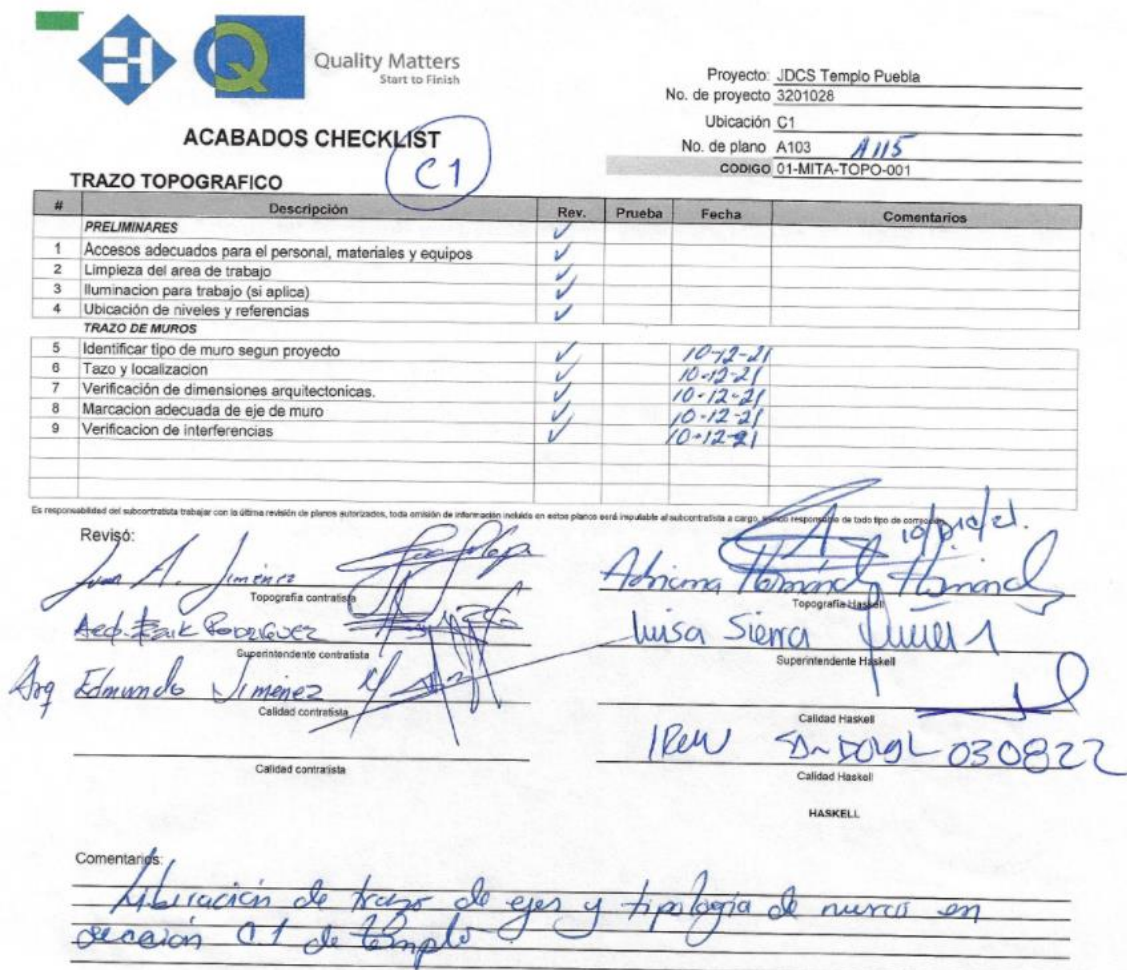 Quality Matters
Start to Finish
Proyecto: JDCS Templo Puebla
No. de proyecto 3201028
Ubicación C1
No. de plano A103 A115
CODIGO 01-MITA-TOPO-001
ACABADOS CHECKLIST
C1
TRAZO TOPOGRAFICO
# Descripción Rev. Prueba Fecha Comentarios
PRELIMINARES ✓
1 Accesos adecuados para el personal, materiales y equipos ✓
2 Limpieza del area de trabajo ✓
3 Iluminacion para trabajo (si aplica) ✓
4 Ubicación de niveles y referencias ✓
TRAZO DE MUROS
5 Identificar tipo de muro segun proyecto ✓ 10-12-21
6 Tazo y localizacion ✓ 10-12-21
7 Verificación de dimensiones arquitectonicas. ✓ 10-12-21
8 Marcacion adecuada de eje de muro ✓ 10-12-21
9 Verificacion de interferencias ✓ 10-12-21
Es responsabilidad del subcontratista trabajar con la última revisión de planos autorizados, toda omisión de información incluida en estos planos será imputable al subcontratista a cargo, responsable de todo tipo de
Revisó:
Juan A. Jiménez
Topografía contratista
Adriana Hernández
Topografía Haskell
Arq. Erik Rodríguez
Superintendente contratista
Luisa Sierra
Superintendente Haskell
Arq Edmundo Jiménez
Calidad contratista
Calidad Haskell
030822
Calidad contratista
Calidad Haskell
HASKELL
Comentarios:
Liberación de trazo de ejes y tipología de muros en
sección C.1 de templo